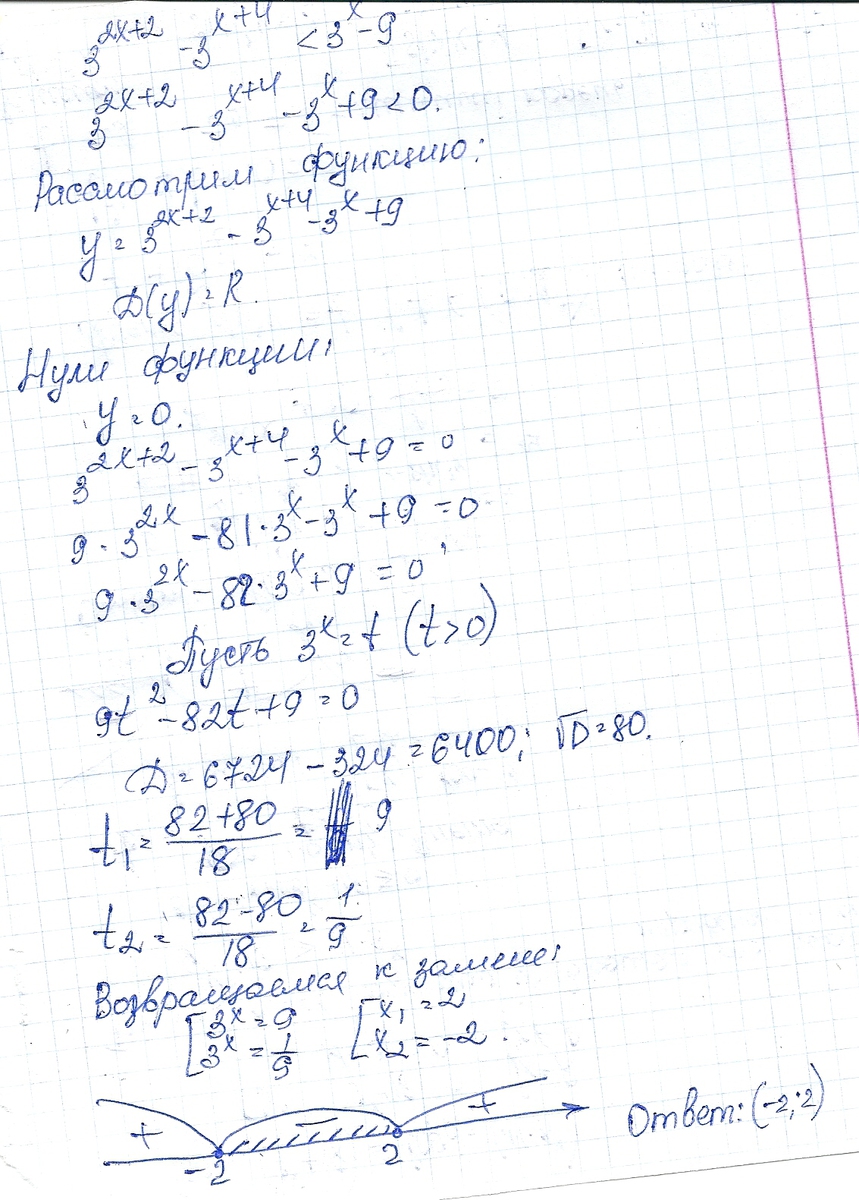 3^{2x+2} - 3^{x+4} < 3^x - 9
3^{2x+2} - 3^{x+4} - 3^x + 9 < 0.
Рассмотрим функцию:
y = 3^{2x+2} - 3^{x+4} - 3^x + 9
D(y) = R.
Нули функции:
y = 0.
3^{2x+2} - 3^{x+4} - 3^x + 9 = 0
9 · 3^{2x} - 81 · 3^x - 3^x + 9 = 0
9 · 3^{2x} - 82 · 3^x + 9 = 0
Пусть 3^x = t (t > 0)
9t^2 - 82t + 9 = 0
D = 6724 - 324 = 6400; √D = 80.
t_1 = (82 + 80)/18 = 9
t_2 = (82 - 80)/18 = 1/9
Возвращаемся к замене:
[3^x = 9 [x_1 = 2
[3^x = 1/9 [x_2 = -2.
+ - +
-2 2
Ответ: (-2; 2)